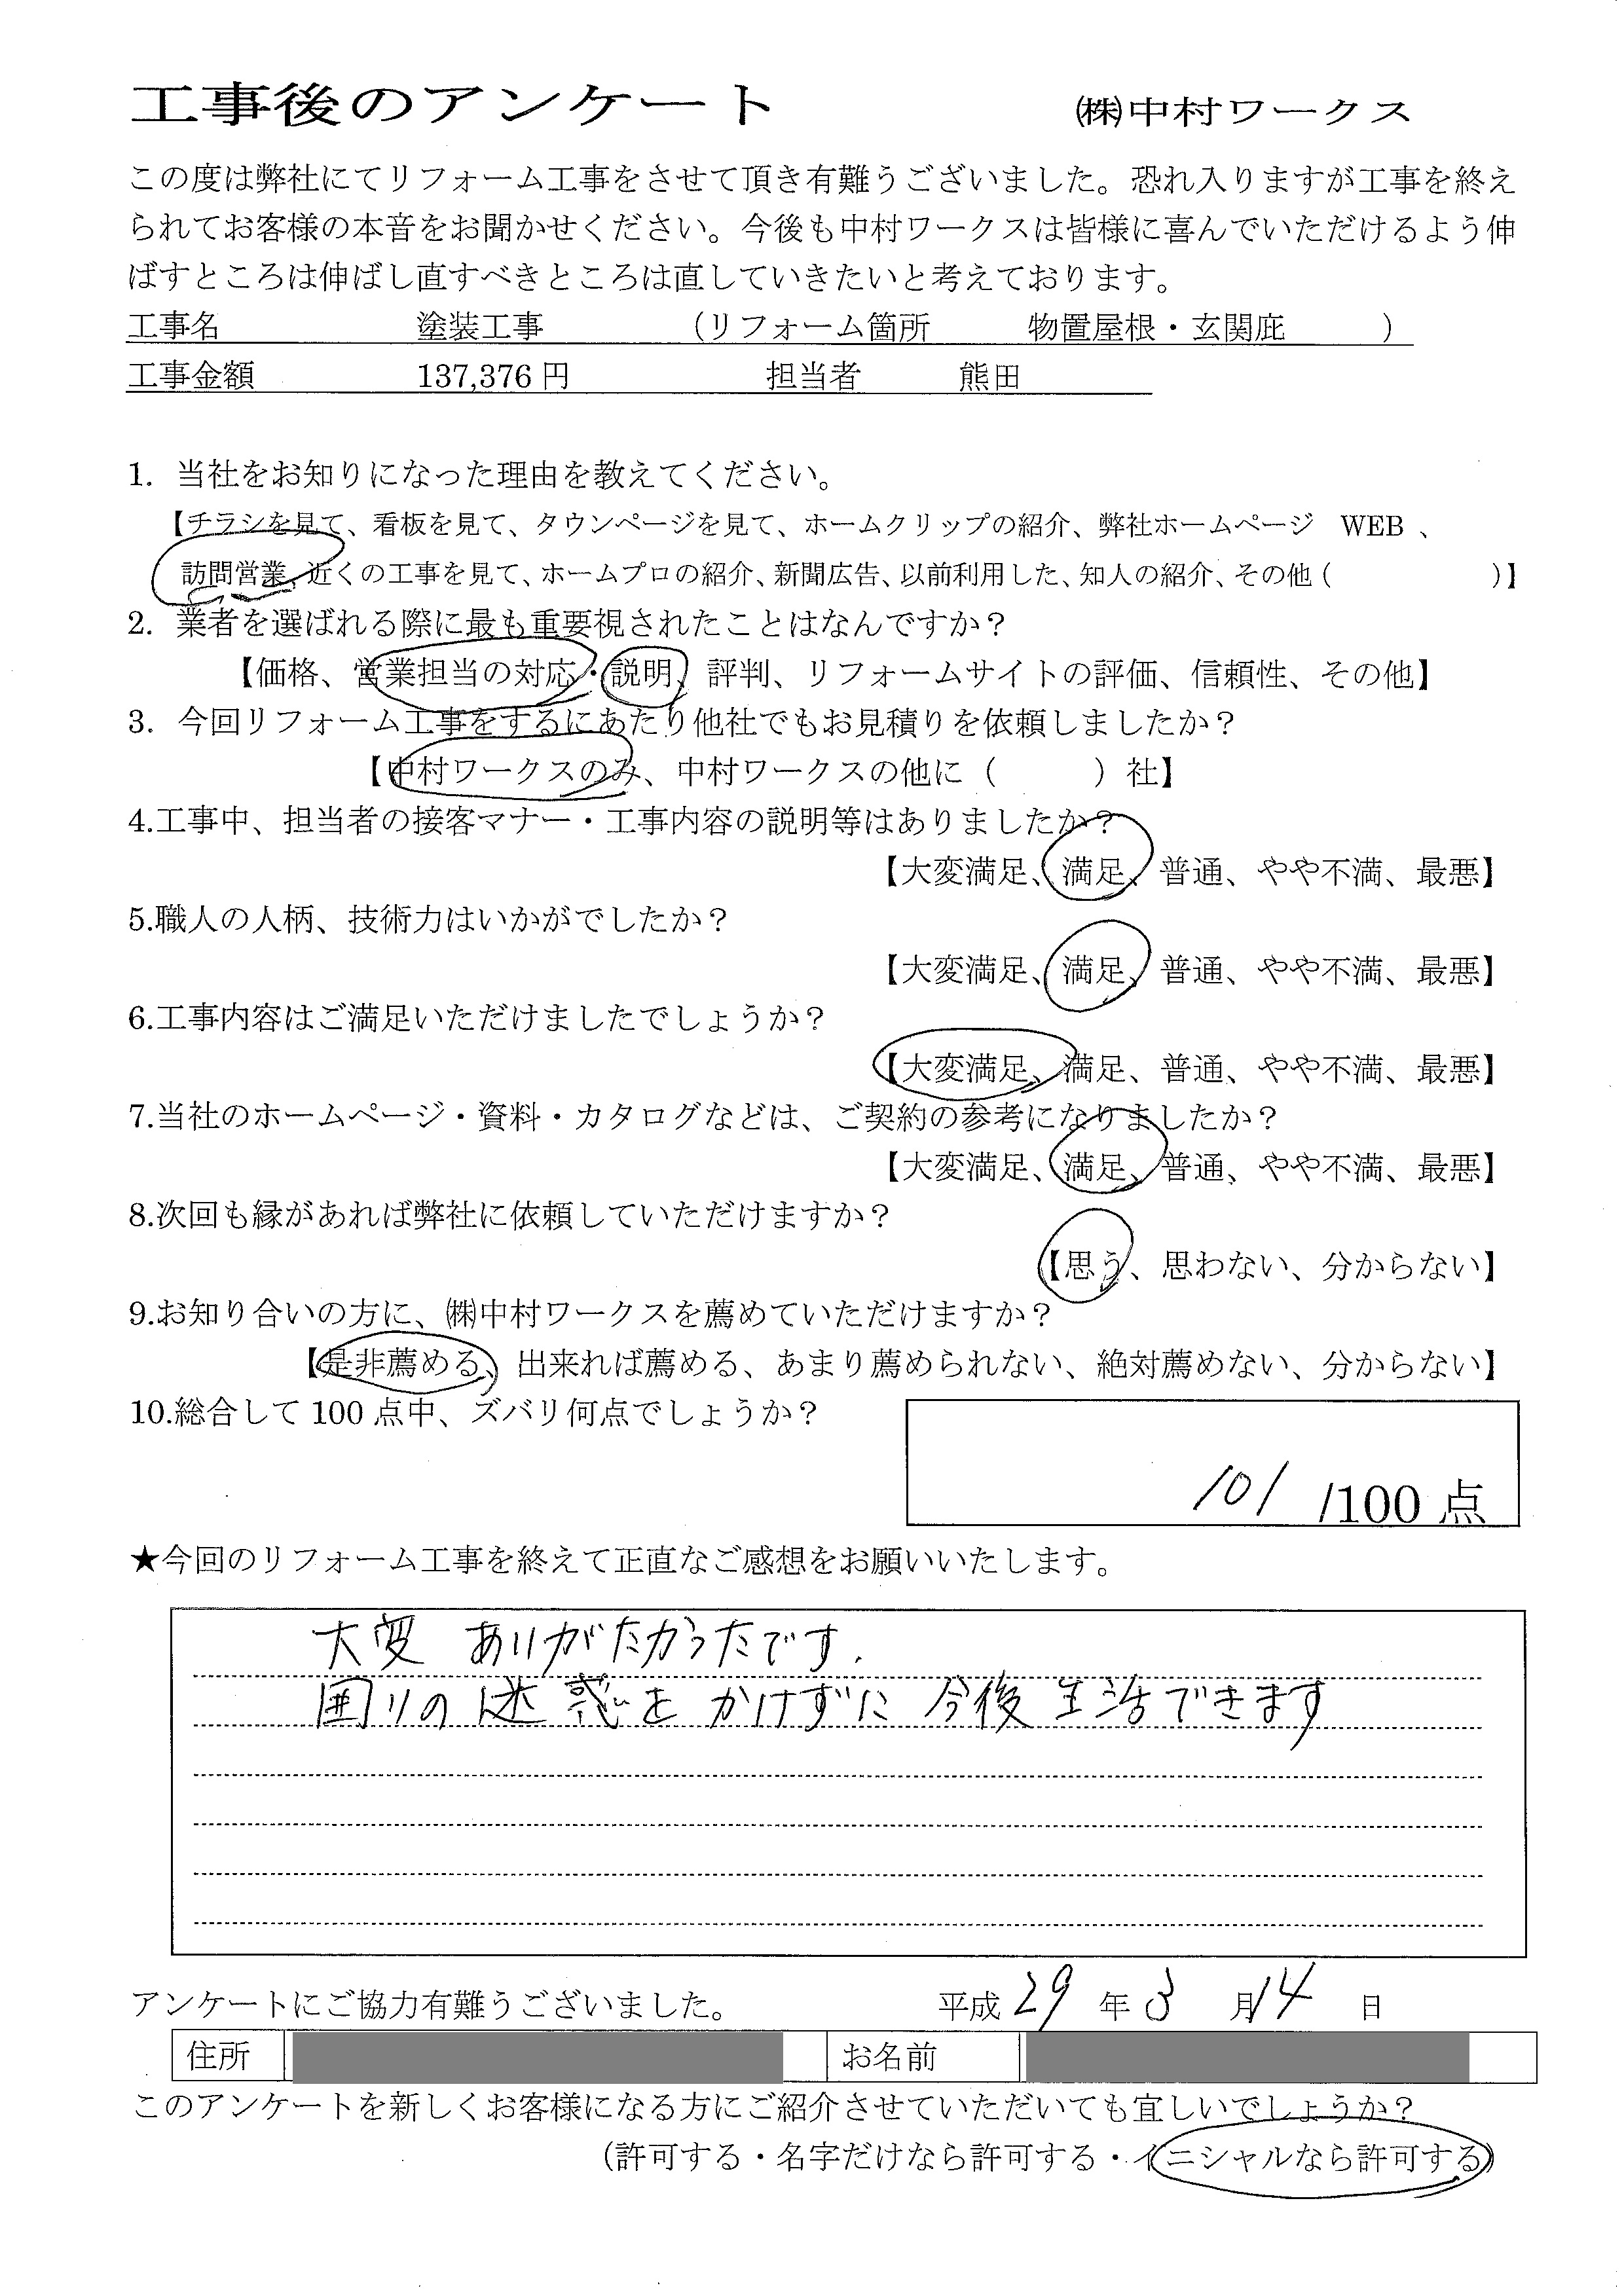 工事後のアンケート ㈱中村ワークス
この度は弊社にてリフォーム工事をさせて頂き有難うございました。恐れ入りますが工事を終え
られてお客様の本音をお聞かせください。今後も中村ワークスは皆様に喜んでいただけるよう伸
ばすところは伸ばし直すべきところは直していきたいと考えております。
工事名 塗装工事 （リフォーム箇所 物置屋根・玄関庇 ）
工事金額 137,376 円 担当者 熊田
1. 当社をお知りになった理由を教えてください。
【チラシを見て、看板を見て、タウンページを見て、ホームクリップの紹介、弊社ホームページ WEB 、
訪問営業、近くの工事を見て、ホームプロの紹介、新聞広告、以前利用した、知人の紹介、その他（ ）】
2. 業者を選ばれる際に最も重要視されたことはなんですか？
【価格、営業担当の対応・説明、評判、リフォームサイトの評価、信頼性、その他】
3. 今回リフォーム工事をするにあたり他社でもお見積りを依頼しましたか？
【中村ワークスのみ、中村ワークスの他に（ ）社】
4.工事中、担当者の接客マナー・工事内容の説明等はありましたか？
【大変満足、満足、普通、やや不満、最悪】
5.職人の人柄、技術力はいかがでしたか？
【大変満足、満足、普通、やや不満、最悪】
6.工事内容はご満足いただけましたでしょうか？
【大変満足、満足、普通、やや不満、最悪】
7.当社のホームページ・資料・カタログなどは、ご契約の参考になりましたか？
【大変満足、満足、普通、やや不満、最悪】
8.次回も縁があれば弊社に依頼していただけますか？
【思う、思わない、分からない】
9.お知り合いの方に、㈱中村ワークスを薦めていただけますか？
【是非薦める、出来れば薦める、あまり薦められない、絶対薦めない、分からない】
10.総合して 100 点中、ズバリ何点でしょうか？
101 /100 点
★今回のリフォーム工事を終えて正直なご感想をお願いいたします。
大変 ありがたかったです.
囲りの迷惑をかけずに 今後 生活できます
アンケートにご協力有難うございました。 平成 29 年 3 月 14 日
住所 お名前
このアンケートを新しくお客様になる方にご紹介させていただいても宜しいでしょうか？
（許可する・名字だけなら許可する・イニシャルなら許可する）